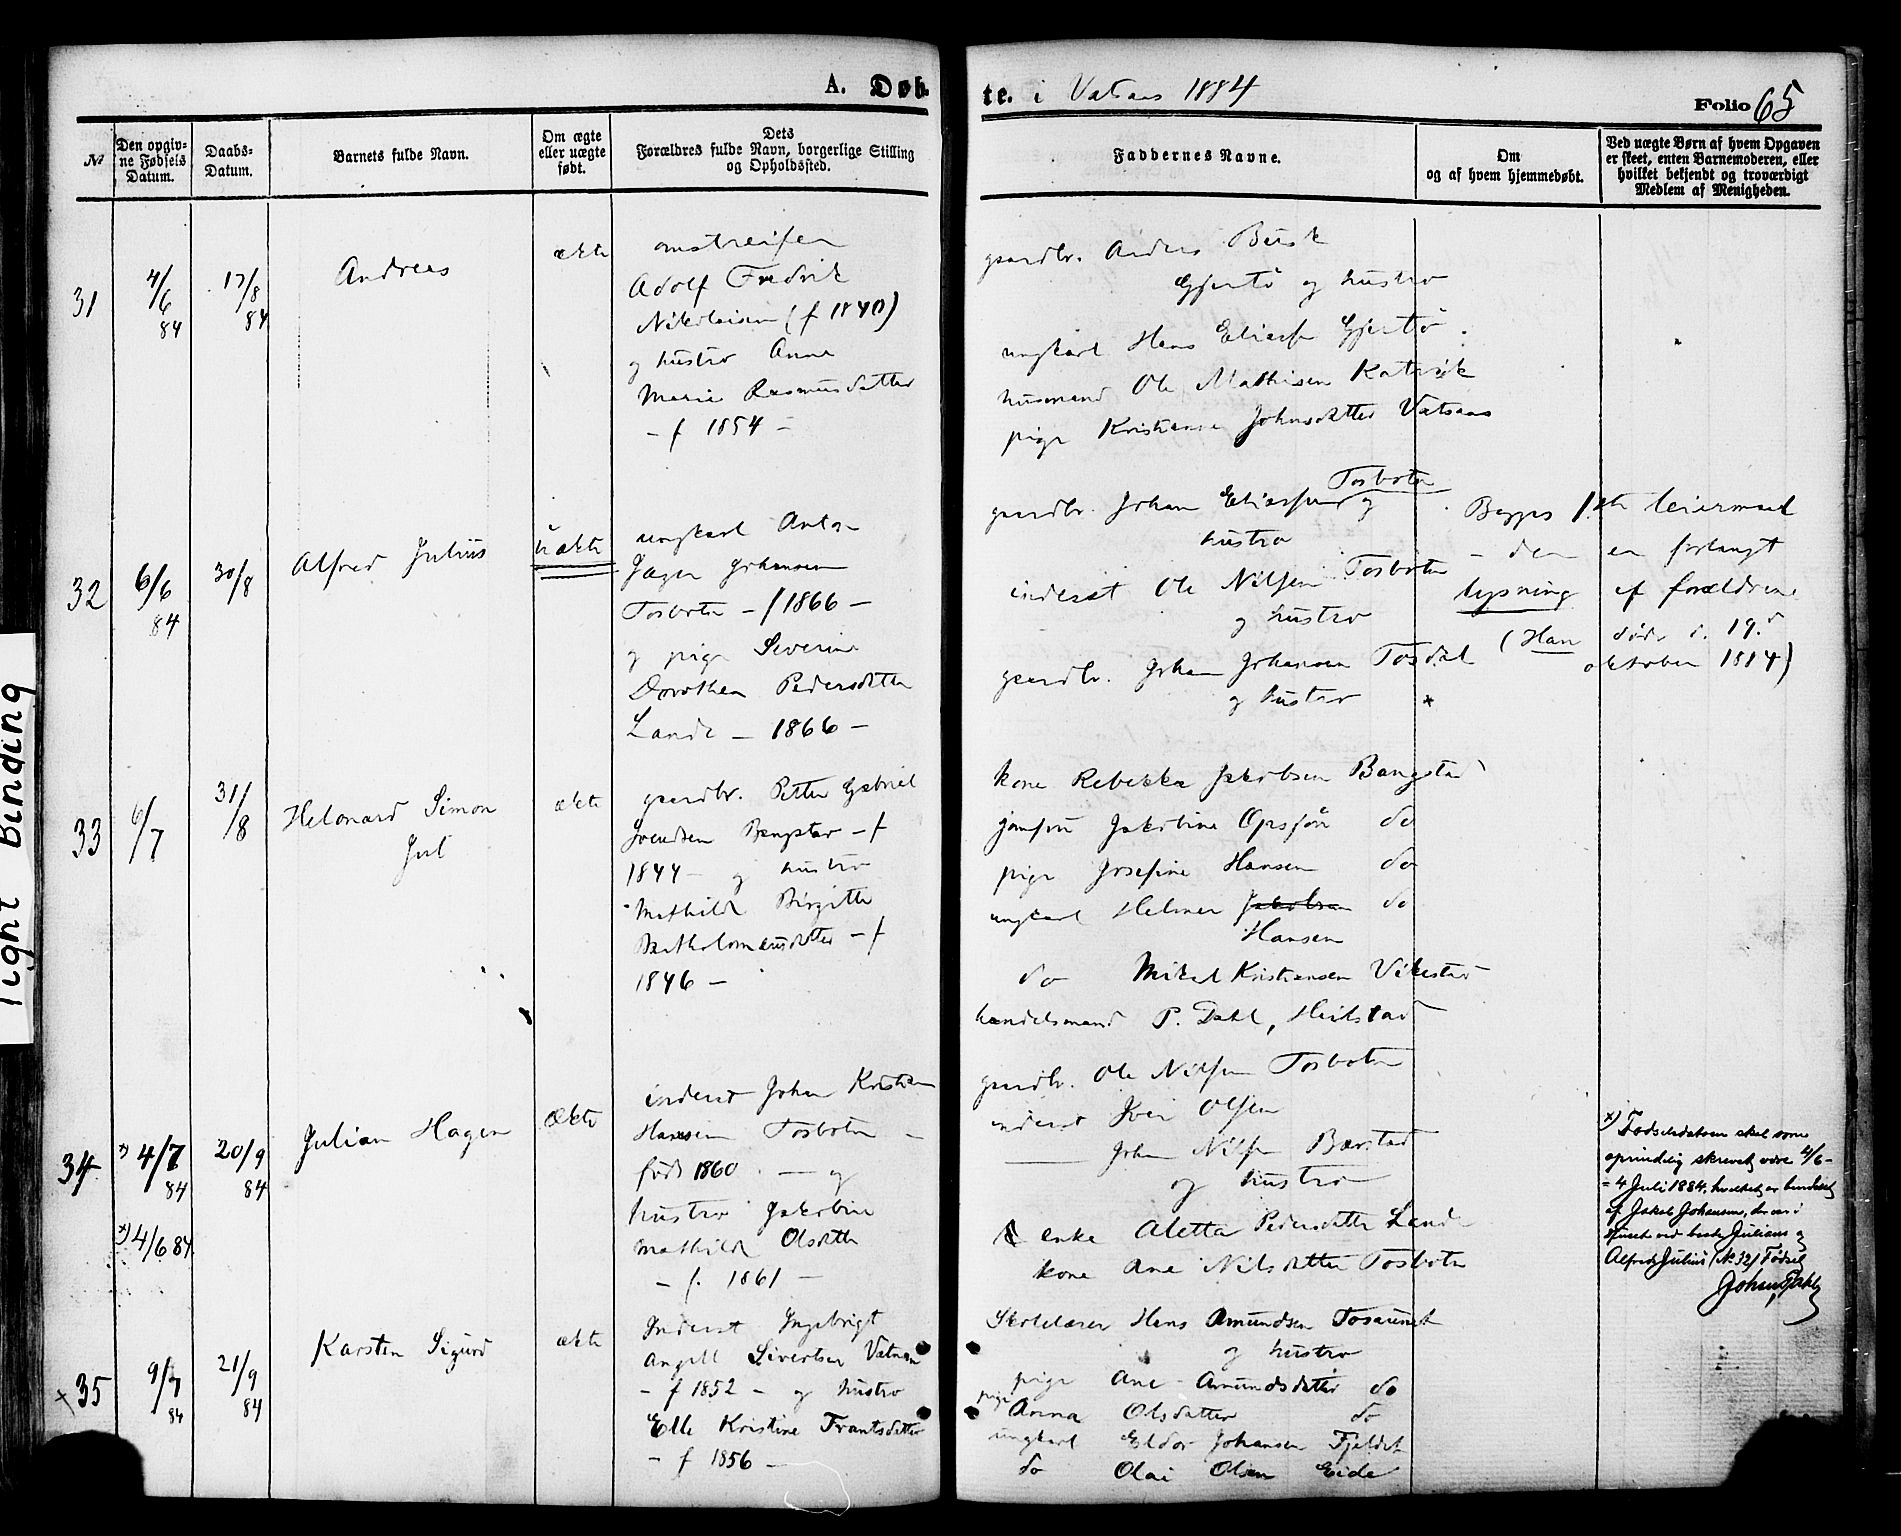 A. Døb-
te. i Vatsaas 1884
Folio 65
№
Den opgiv-
ne Fødsels
Datum.
Daabs-
Datum.
Barnets fulde Navn.
Om ægte
eller uægte
født.
Dets
Forældres fulde Navn, borgerlige Stilling
og Opholdssted.
Faddernes Navne.
Om
og af hvem hjemmedøbt.
Ved uægte Børn af hvem Opgaven
er skeet, enten Barnemoderen, eller
hvilket bekjendt og troværdigt
Medlem af Menigheden.
31
4/6 84
17/8 84
Andreas
ækte
omstreifer
Adolf Fredrik
Nikolaisen (f 1840)
og hustro Anna
Marie Rasmusdatter
- f 1854 -
gaardbr. Anders Busk
Gjertø og hustro
ungkarl Hans Eliass Gjertø
husmand Ole Mathisen
pige Kristianna Johnsdatter Vatsaas
32
6/6 84
30/8
Alfred Julius
uækte
ungkarl Anton
Jager Johansen
Tosboten - f 1866 -
og pige Severine
Dorothea Pedersdatter
Lande - 1866 -
Tosboten
gaardbr. Johan Eliassen og
hustro
inderst Ole Nilsen Tosboten
og hustro
gaardbr. Johan Johansen Tosdal
og hustro
Begges 1ste leiermaal
- den er forlangt
lysning af forældrene
(Han døde d. 19.d
oktober 1884)
33
6/7
31/8
Helonard Simon
Jul
ækte
gaardbr. Petter Gabriel
Svendsen Bangstad - f
1844 - og hustro
Mathilde Birgitte
Bartholomæusdatter - f
1846 -
kone Rebekka Jakobsen Bangstad
jomfru Jakobine Opsjøn do
pige Josefine Hansen do
ungkarl Helmer Jakobsen do
Hansen
do Mikal Kristiansen Vikestad
handelsmand P. Dahl, Heilstad
34
x) 4/7 84
x) 4/6 84
20/9 84
Julian Hagen
Ækte
inderst Johan Kristian
Hansen Tosboten -
født 1860 - og
hustro Jakobine
Mathilde Olsdatter
- f. 1861 -
gaardbr. Ole Nilsen Tosboten
inderst Iver Olsen
Johan Nilsen Barstad
og hustro
enke Aletta Pedersdatter Lande
kone Ane Nilsdatter Tosboten
x) Fødselsdatoen skal som
oprindelig skrevet være 4/6 -
= 4 Juli 1884, hvilket er bevidnet
af Jakob Johansen, der var i
huset ved baade Julians og
Alfred Julius (№ 32) Fødsel
Johan Dahl
x 35
9/7 84
21/9 84
Karsten Sigurd
ækte
Inderst Ingebrigt
Angell Sivertsen Vatnan
- f 1852 - og hustro
Elle Kristine Frantsdatter
- f 1856 -
Skolelærer Hans Amundsen Tosaunet
og hustro
pige Ane Amundsdatter do
pige Anna Olsdatter do
ungkarl Eldor Johansen Fjeldet
do Olai Olsen Eide
Tight Binding